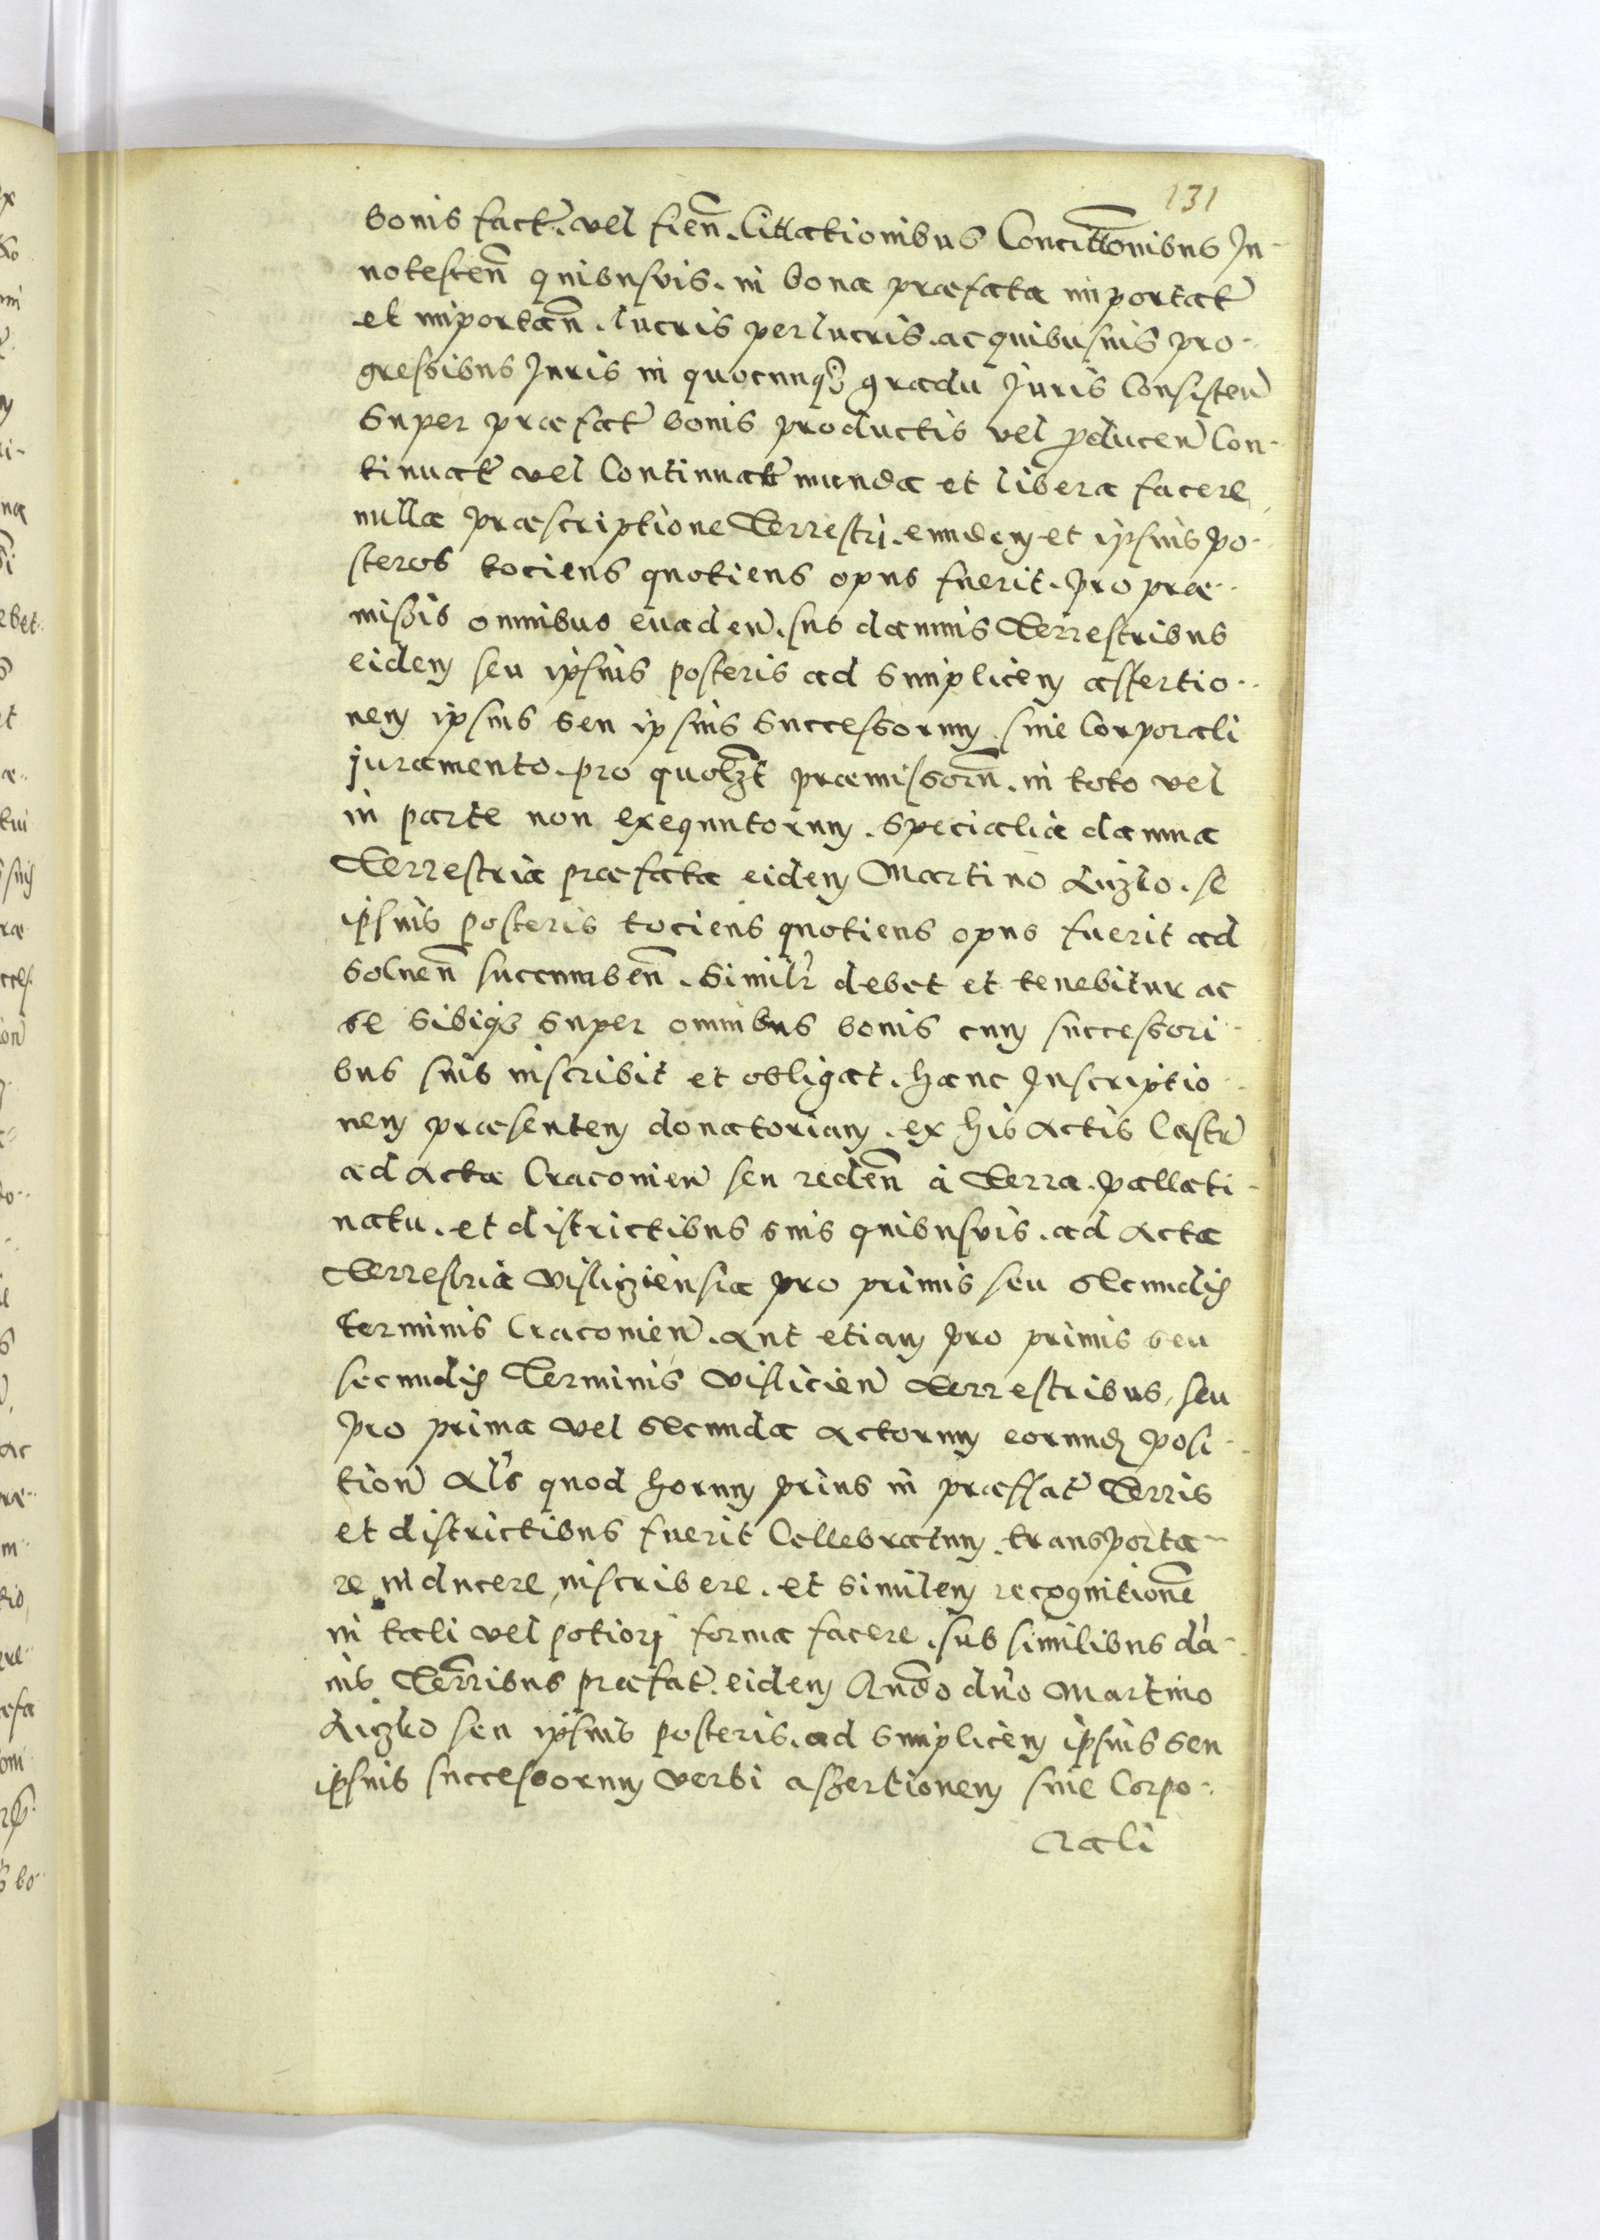 131
bonis fact. vel fien. Cittationibus Concittonibus In-
notescen quibusvis. in bona præfata importat
et importan. lucris perlucris. ac quibusuis pro-
gressibus Juris in quocunqʒ gradu Juris Consisten
Super præfat bonis productis vel producen Con-
tinuat vel Continuat munda et libera facere
nulla præscriptione Terrestri. eundem et ipsius Po-
steros tociens quotiens opus fuerit. pro præ-
missis omnibus euaden. sub damnis Terrestribus
eidem seu ipsius posteris ad simplicem assertio-
nem ipsius seu ipsius Successorum. sine Corporali
juramento. pro quolʒt præmissorn. in toto vel
in parte non exequutorum. specialia damna
Terrestria præfata eidem Martino se
ipsius posteris tociens quotiens opus fuerit ad
soluen succumben. Similr debet et tenebitur ac
se sibiqʒ super omnibus bonis cum successori-
bus suis inscribit et obligat. hanc Inscriptio-
nem præsentem donatoriam. ex his Actis Castr
ad Acta Cracouien seu reden à Terra. Pallati-
natu. et districtibus suis quibusvis. ad Acta
Terrestria Visliziensia pro primis seu secundis
terminis Cracouien. Aut etiam pro primis seu
secundis Terminis Vislicien Terrestribus, seu
pro prima vel secunda Actorum eorund posi-
tion Als quod horum prius in præffat Terris
et districtibus fuerit Cellebratum. transporta-
re inducere, inscribere. et similem recognitione
in tali vel potiori forma facere. sub similibus da-
nis Terribus præfat. eidem Gndo dno Martino
seu ipsius posteris. ad simplicem ipsius seu
ipsius successorum verbi assertionem sine Corpo-
rali